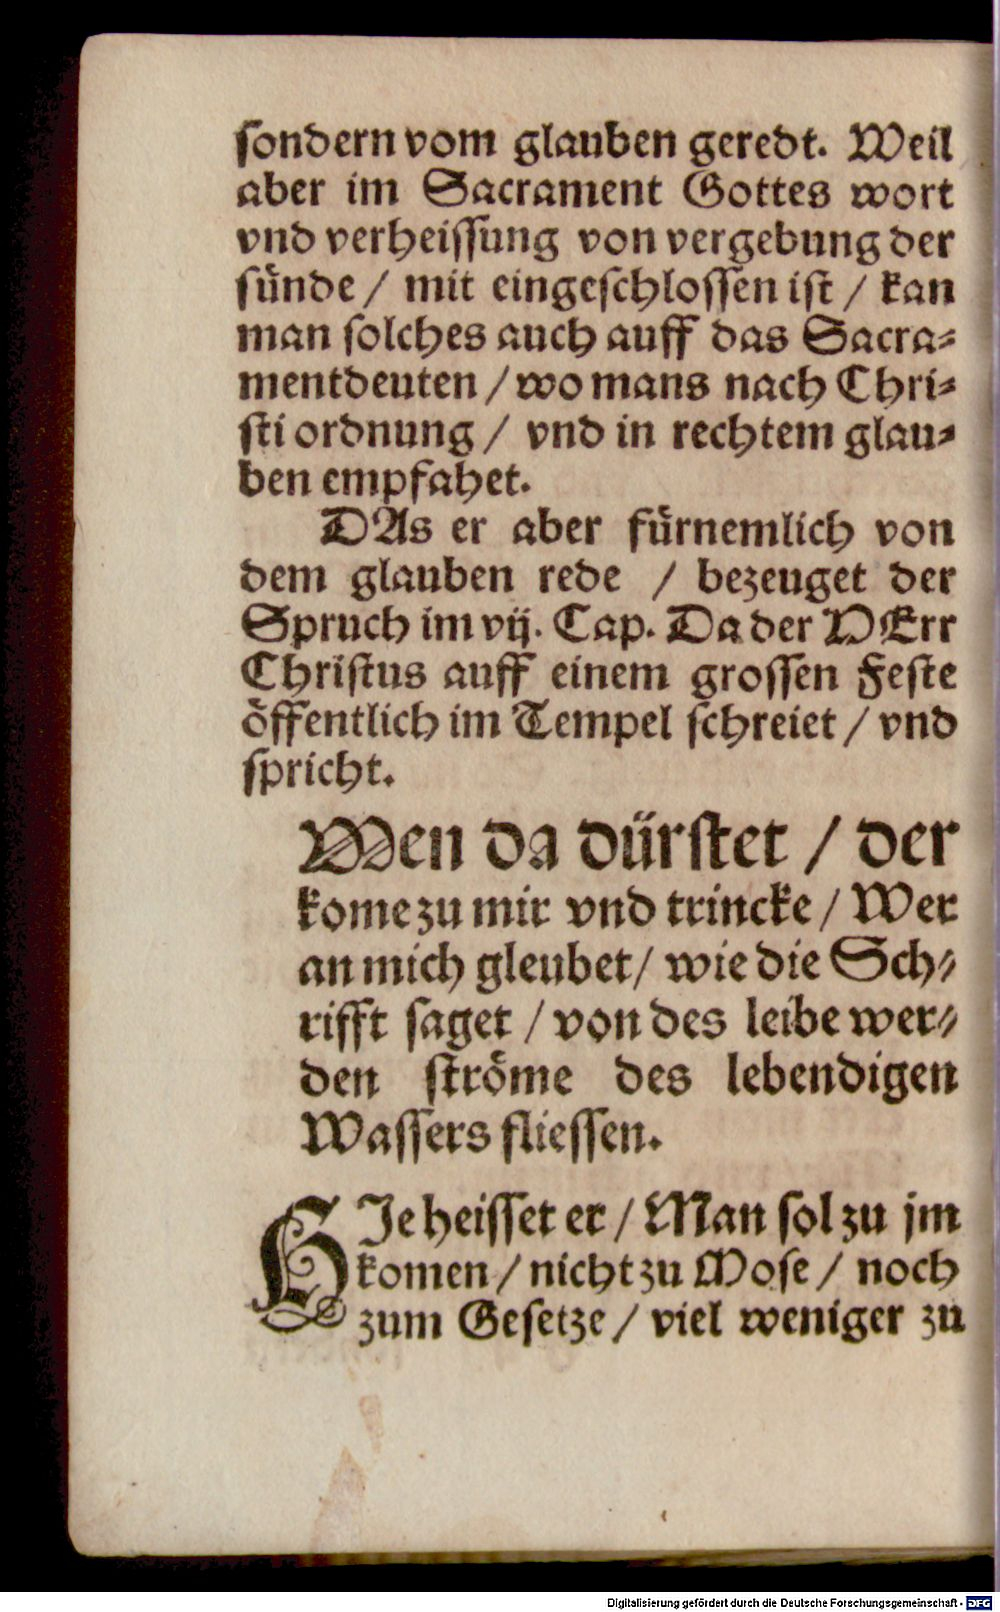 sondern vom glauben geredt. Weil
aber im Sacrament Gottes wort
vnd verheissung von vergebung der
sünde / mit eingeschlossen ist / kan
man solches auch auff das Sacra-
ment deuten / wo mans nach Chri-
sti ordnung / vnd in rechtem glau-
ben empfahet.
DAs er aber fürnemlich von
dem glauben rede / bezeuget der
Spruch im vij. Cap. Da der HErr
Christus auff einem grossen Feste
öffentlich im Tempel schreiet / vnd
spricht.
Wen da dürstet / der
kome zu mir vnd trincke / Wer
an mich gleubet / wie die Sch-
rifft saget / von des leibe wer-
den ströme des lebendigen
Wassers fliessen.
HIe heisset er / Man sol zu jm
komen / nicht zu Mose / noch
zum Gesetze / viel weniger zu
Digitalisierung gefördert durch die Deutsche Forschungsgemeinschaft - DFG